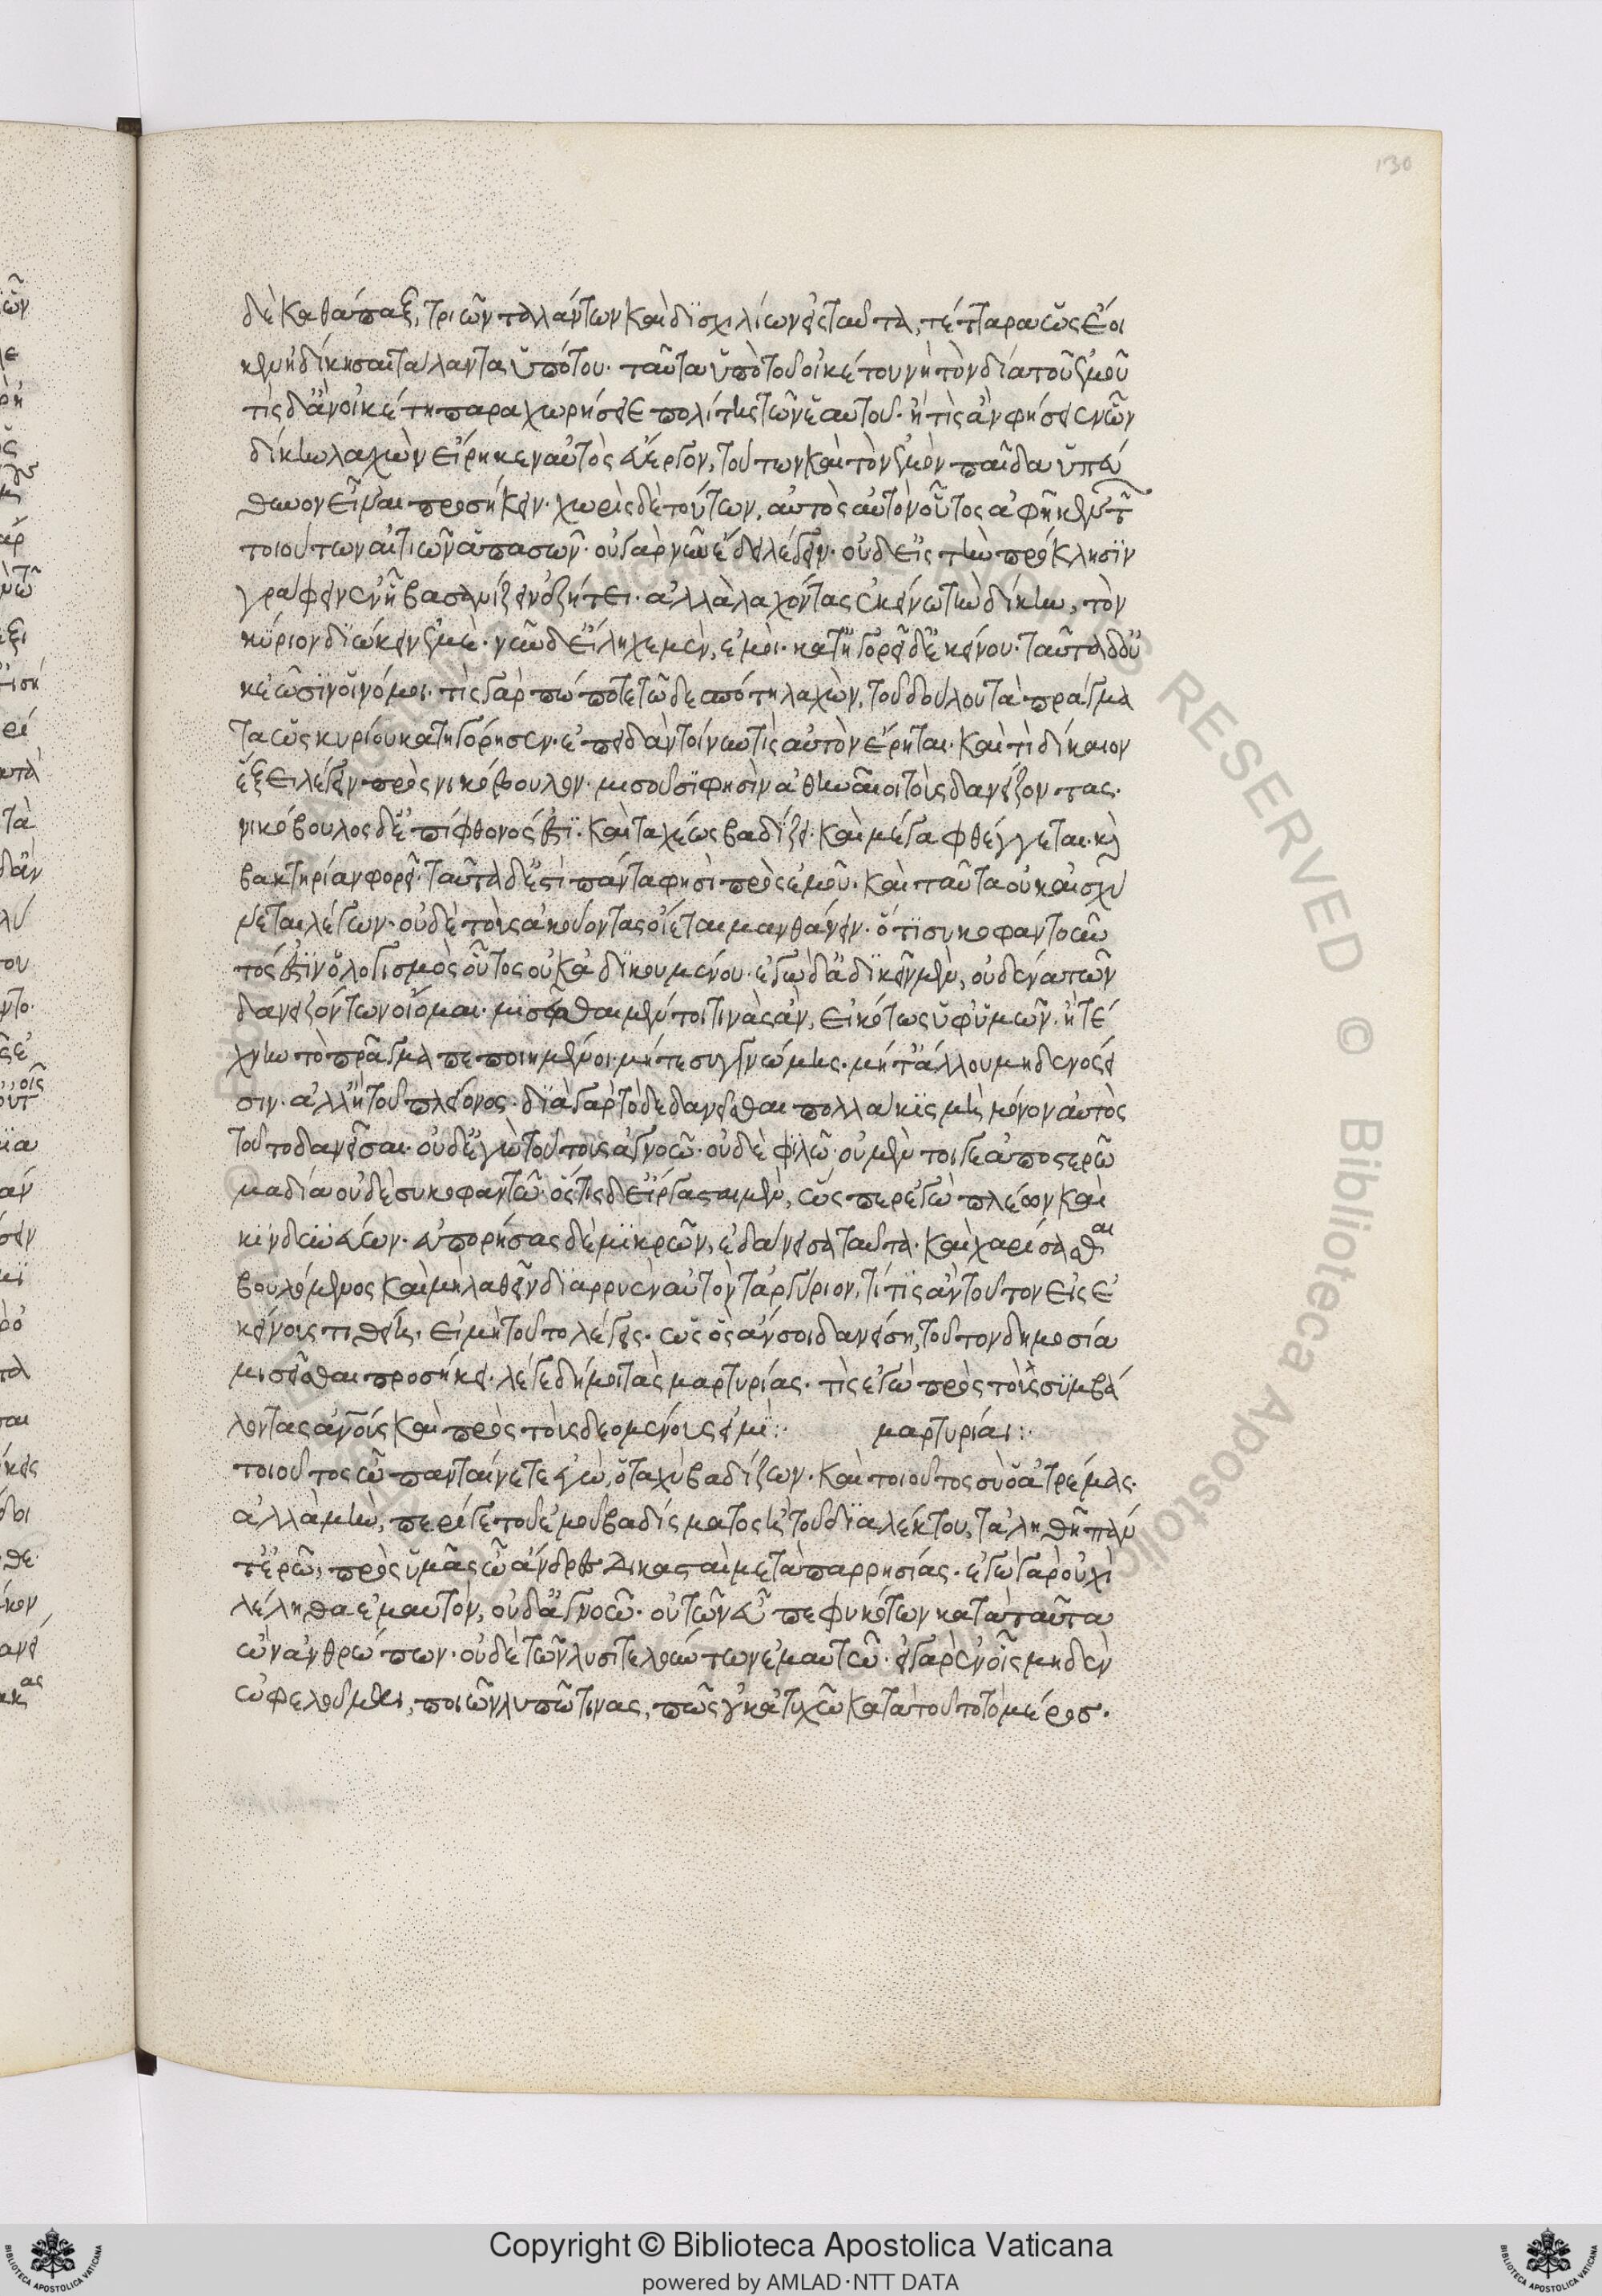 130
δὲ καθάπαξ, τριῶν ταλάντων καὶ δισχιλίων εἰς ταῦτα, τέτταρα ὥς ἔοι
κεν ἠδίκησαι τάλαντα ὑπό του· ταῦτα ὑπὸ τοῦ οἰκέτου νὴ τὸν δία τοῦ ἐμοῦ
τίς δ' ἂν οἰκέτη παραχωρήσειε πολίτης τῶν ἑαυτοῦ· ἢ τίς ἂν φήσειεν ὧν
δίκην λαχὼν εἴρηκεν αὐτὸς εὐέργον, τούτων καὶ τὸν ἐμὸν παῖδα ὑπεύ
θυνον εἶναι προσήκειν· χωρὶς δὲ τούτων, αὐτὸς αὐτὸν οὗτος ἀφῆκεν τ
τοιούτων αἰτιῶν ἁπασῶν· οὐ γὰρ νῦν ἔδει λέγειν· οὐδ' εἰς τὴν πρόκλησιν
γράφειν ἐν ᾗ βασανίζειν ἐζήτει· ἀλλὰ λαχόντα ἐκείνῳ τὴν δίκην, τὸν
κύριον διώκειν ἐμὲ· νῦν δ' εἴληχε μὲν, ἐμοί· κατηγορεῖ δ' ἐκείνου· ταῦτα δ' οὐ
κ ἐῶσιν οἱ νόμοι· τίς γὰρ πώποτε τῷ δεσπότῃ λαχὼν, τοῦ δούλου τὰ πράγμα
τα ὥς κυρίου κατηγόρησεν· ἐπειδὰν τοίνυν τις αὐτὸν ἔρηται· καὶ τί δίκαιον
ἕξει λέγειν πρὸς νικόβουλον· μισοῦσι φησὶν ἀθηναῖοι τοὺς δανείζοντας·
νικόβουλος δ' ἐπίφθονός ἐστι· καὶ ταχέως βαδίζει· καὶ μέγα φθέγγεται· κ
βακτηρίαν φορεῖ· ταῦτα δ' ἐστὶ πάντα φησὶ πρὸς ἐμοῦ· καὶ ταῦτα οὐκ αἰσχύ
νεται λέγων· οὐδὲ τοὺς ἀκούοντας οἴεται μανθάνειν· ὅτι συκοφαντοῦν
τός ἐστιν ὁ λογισμὸς οὗτος οὐκ ἀδικουμένου· ἐγὼ δ' ἀδικεῖν μὲν, οὐδένα τῶν
δανειζόντων οἴομαι· μισεῖσθαι μέντοι τινὰς ἂν, εἰκότως ὑφ' ὑμῶν· ἢ τέ
χνην τὸ πρᾶγμα πεποιημένοι μήτε συγγνώμης· μήτ' ἄλλου μηδενός εἰ
σιν· ἀλλ' ἢ τοῦ πλείονος· διὰ γὰρ τὸ δεδανεῖσθαι πολλάκις μὴ μόνον αὐτὸς
τούτο δανεῖσαι· οὐδ' ἐγὼ τούτους ἀγνοῶ· οὐδὲ φιλῶ· οὐ μέντοι γε ἀποστερῶ
μα δία οὐδὲ συκοφαντῶ· ὅστις δ' εἴργασται μὲν, ὥσπερ ἐγὼ πλέων καὶ
κινδυνεύων· εὐπορήσας δὲ μικρῶν, ἐδάνεισα ταῦτα· καὶ χαρίσασθαι
βουλόμενος καὶ μὴ λαθεῖν διαρρυὲν αὐτὸν τἀργύριον, τί τις ἂν τοῦτον εἰς ἐ
κείνους τιθείη, εἰ μὴ τοῦτο λέγεις· ὡς ὃς ἄν σοι δανείσῃ, τοῦτον δημοσίᾳ
μισεῖσθαι προσήκει· λέγε δή μοι τὰς μαρτυρίας· τίς ἐγὼ πρὸς τοὺς συμβά
λοντας ἀνθρώπους καὶ πρὸς τοὺς δεομένους εἰμί:· μαρτυρίαι:·
τοιοῦτος ὦ πανταίνετε ἐγὼ, ὁ ταχὺ βαδίζων· καὶ τοιοῦτος σὺ ὁ ἀτρέμας·
ἀλλὰ μὴν, περί γε τοῦ ἐμοῦ βαδίσματος ἢ τοῦ διαλέκτου, τἀληθῆ πάν
τ' ἐρῶ, πρὸς ὑμᾶς ὦ ἄνδρες δικασταὶ μετὰ παρρησίας· ἐγὼ γὰρ οὐχὶ
λέληθα ἐμαυτόν, οὐδ' ἀγνοῶ· οὐ τῶν εὖ πεφυκότων κατὰ ταῦτα
ὢν ἀνθρώπων· οὐδὲ τῶν λυσιτελούντων ἐμαυτῷ· εἰ γὰρ ἐν οἷς μηδὲν
ὠφελοῦμαι, ποιῶν λυπῶ τινας, πῶς οὐκ ἀτυχῶ κατὰ τοῦτο τὸ μέρος·
Copyright © Biblioteca Apostolica Vaticana
powered by AMLAD·NTT DATA